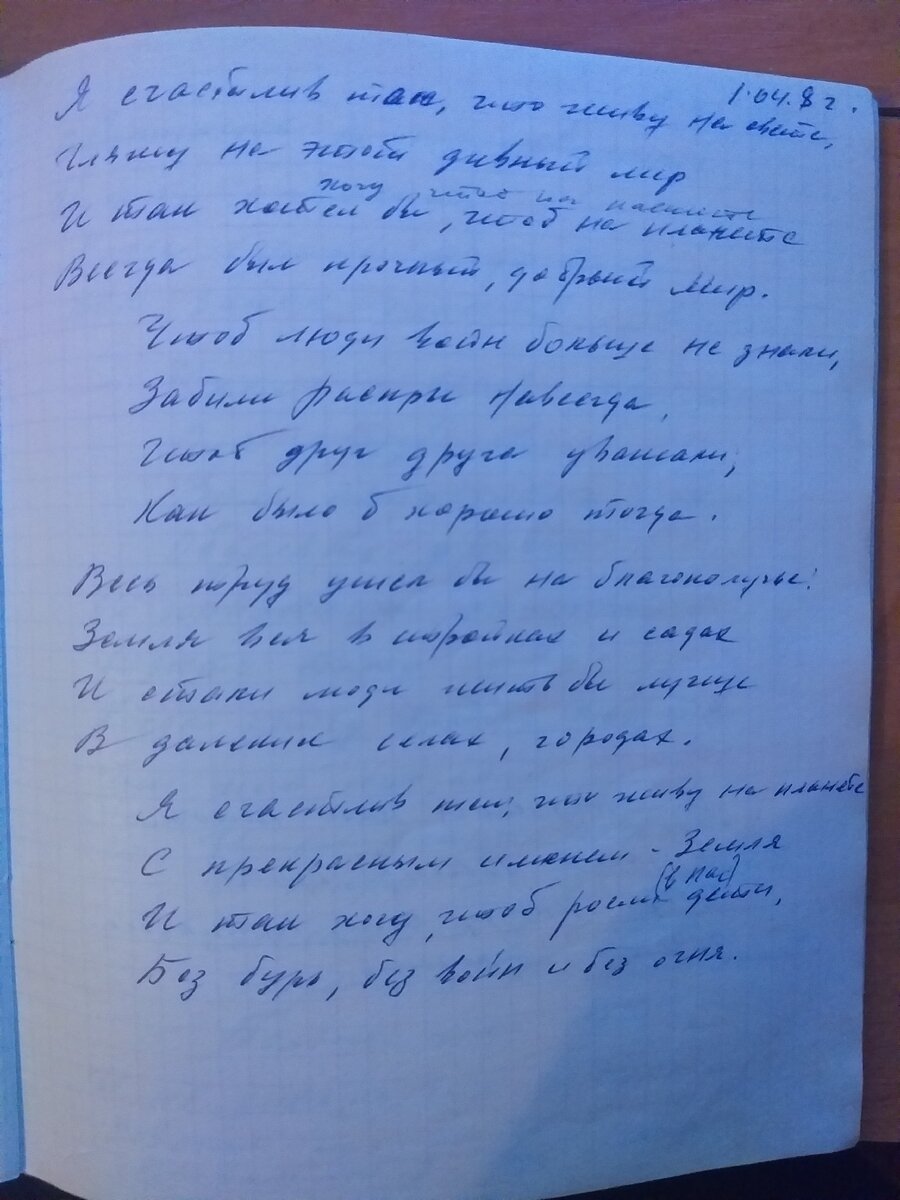 1.04.8 г.
Я счастлив так, что живу на свете,
Гляжу на этот дивный мир
хочу чтоб на планете
И так хотел бы, чтоб на планете
Всегда был прочный, добрый мир.
Чтоб люди войн больше не знали,
Забыли распри навсегда,
Чтоб друг друга уважали,
Как было б хорошо тогда.
Весь труд ушел бы на благополучье:
Земля вся в стройках и садах
И стали люди жить бы лучше
В далеких селах, городах.
Я счастлив тем, что живу на планете
С прекрасным именем - Земля
И так хочу, чтоб росли дети,
Без бурь, без войн и без огня.